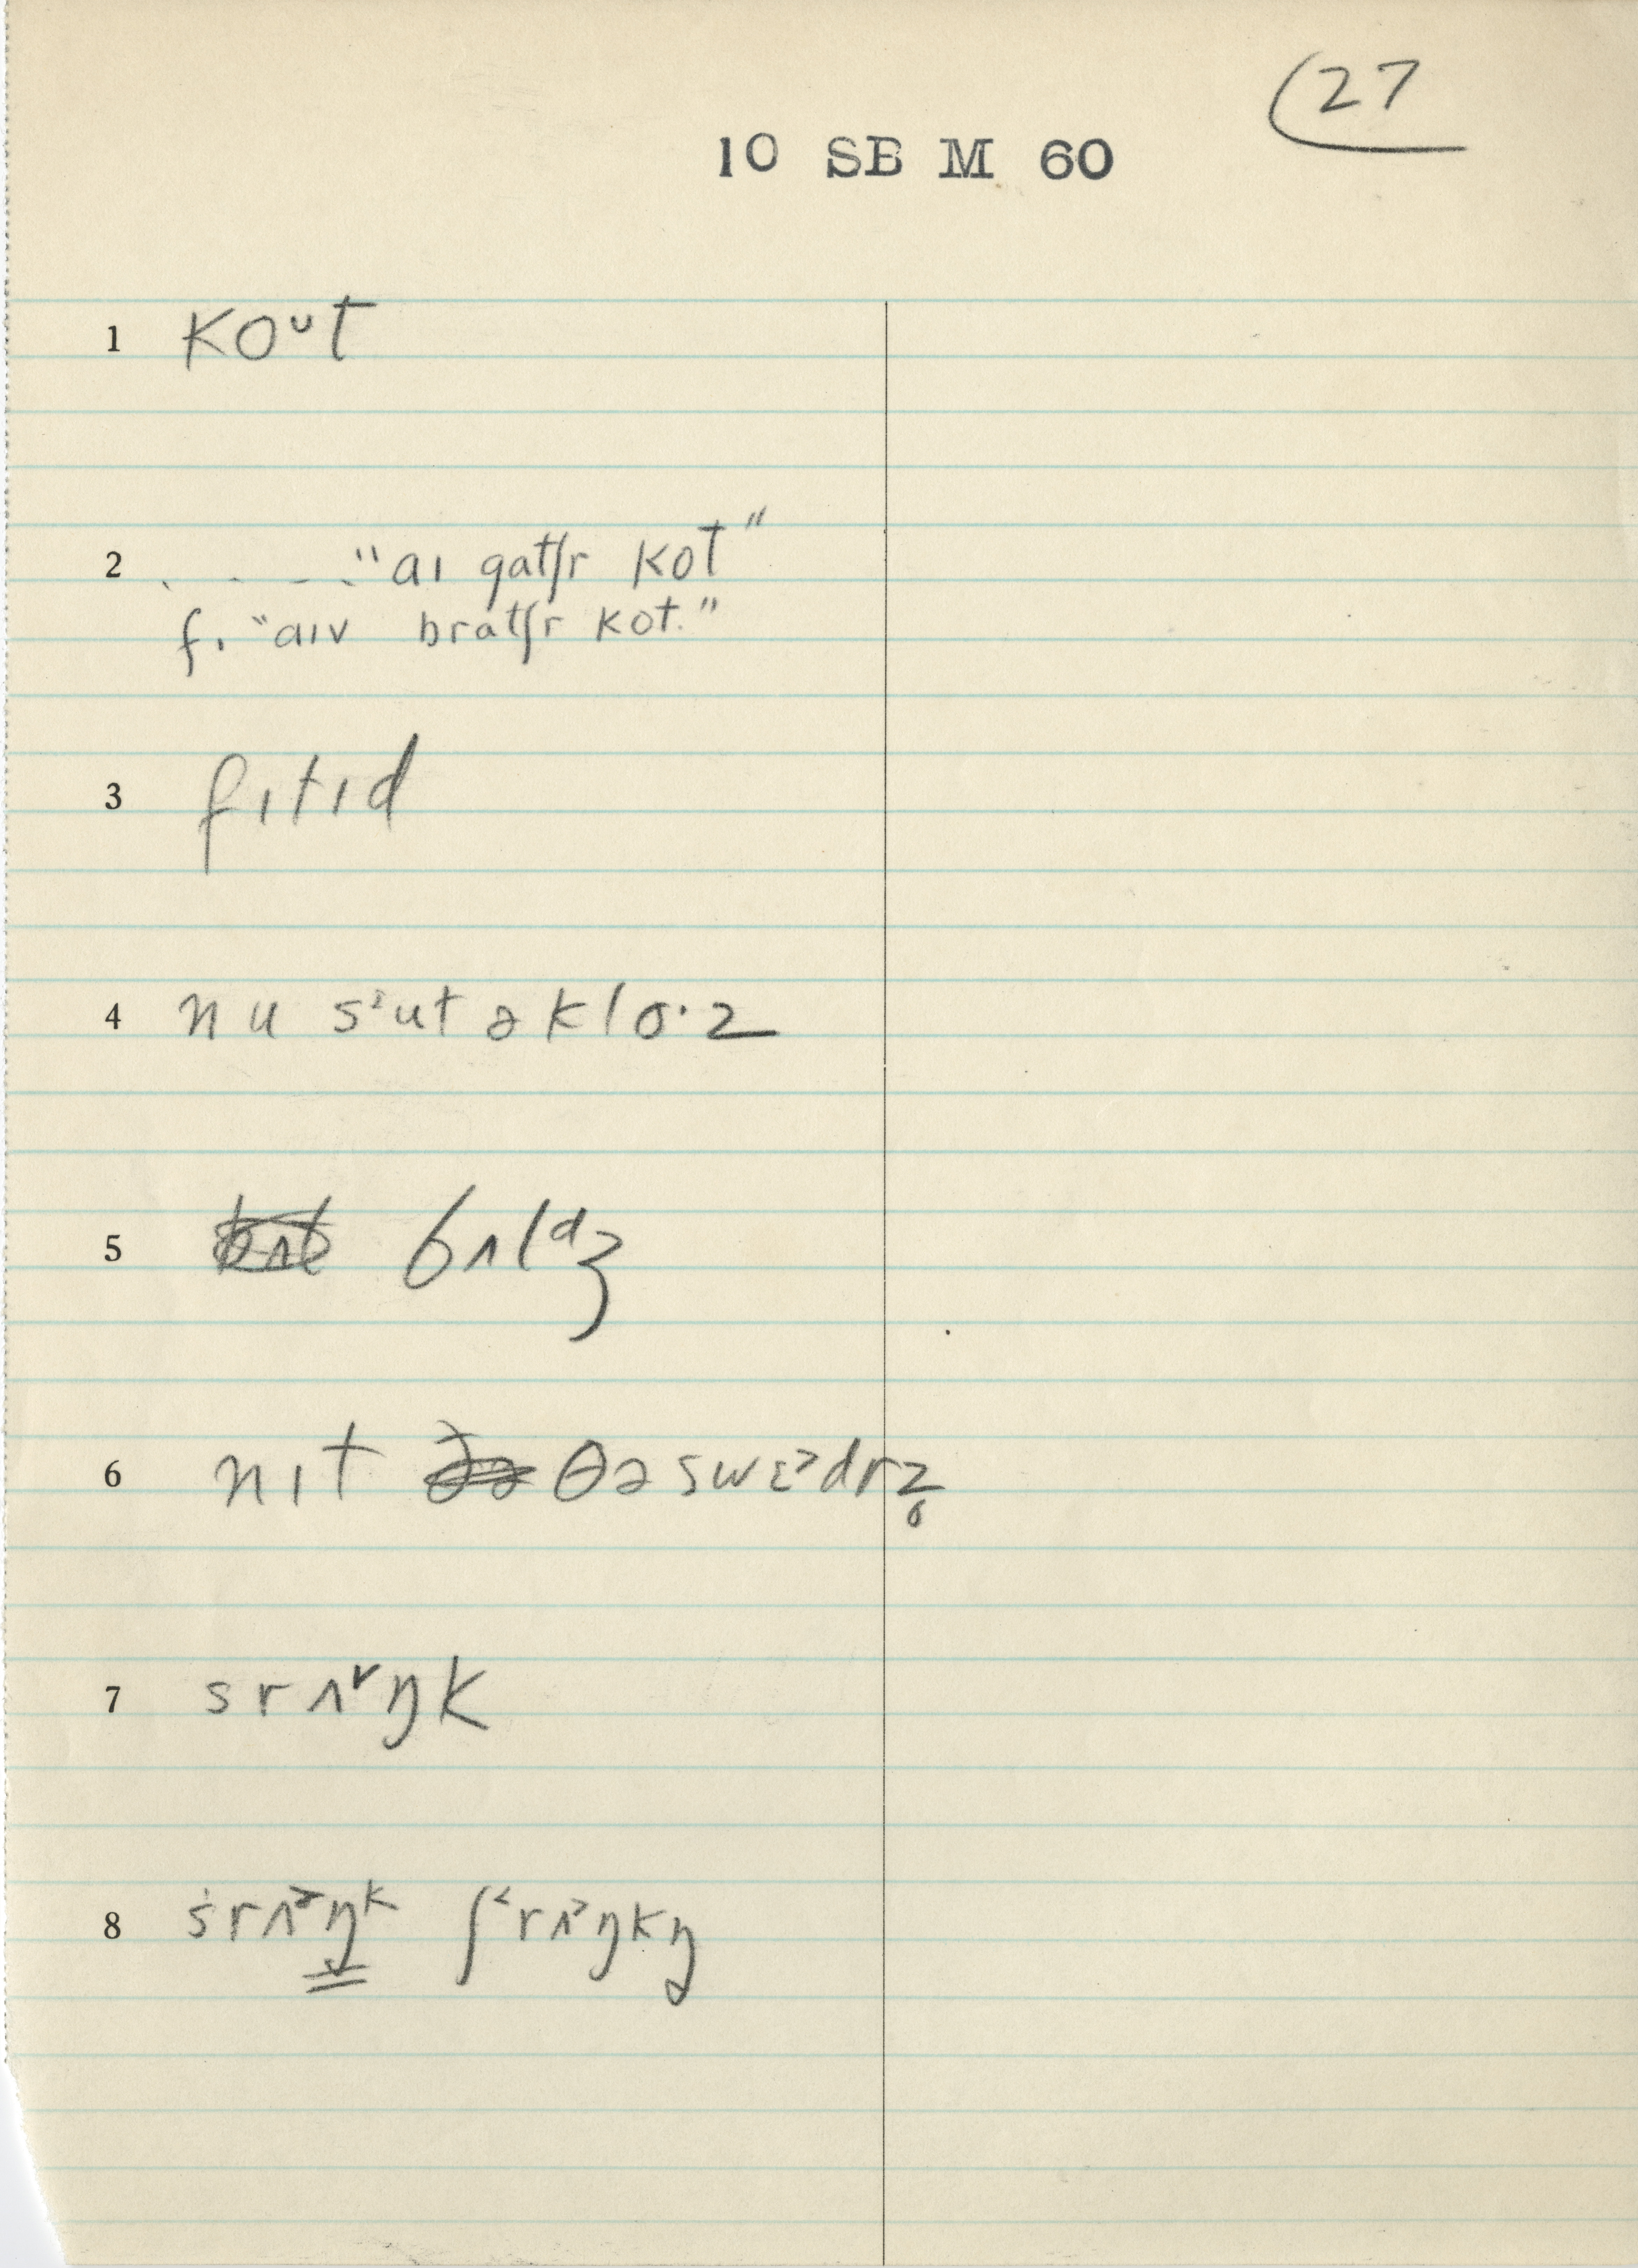 27
10 SB M 60
1 koᴜt
2 . - - -. "aɪ gatʃr kot"
f. "aɪv bratʃr kot."
3 fɪtɪd
4 nu sᶤut ə klo·z
5 bʌlᵈʒ
6 nɪt θə swɛ˃drz̥
7 srʌ˅ŋk
8 ṡrʌ˃ŋᵏ ʃ˂rʌ˃ŋkŋ